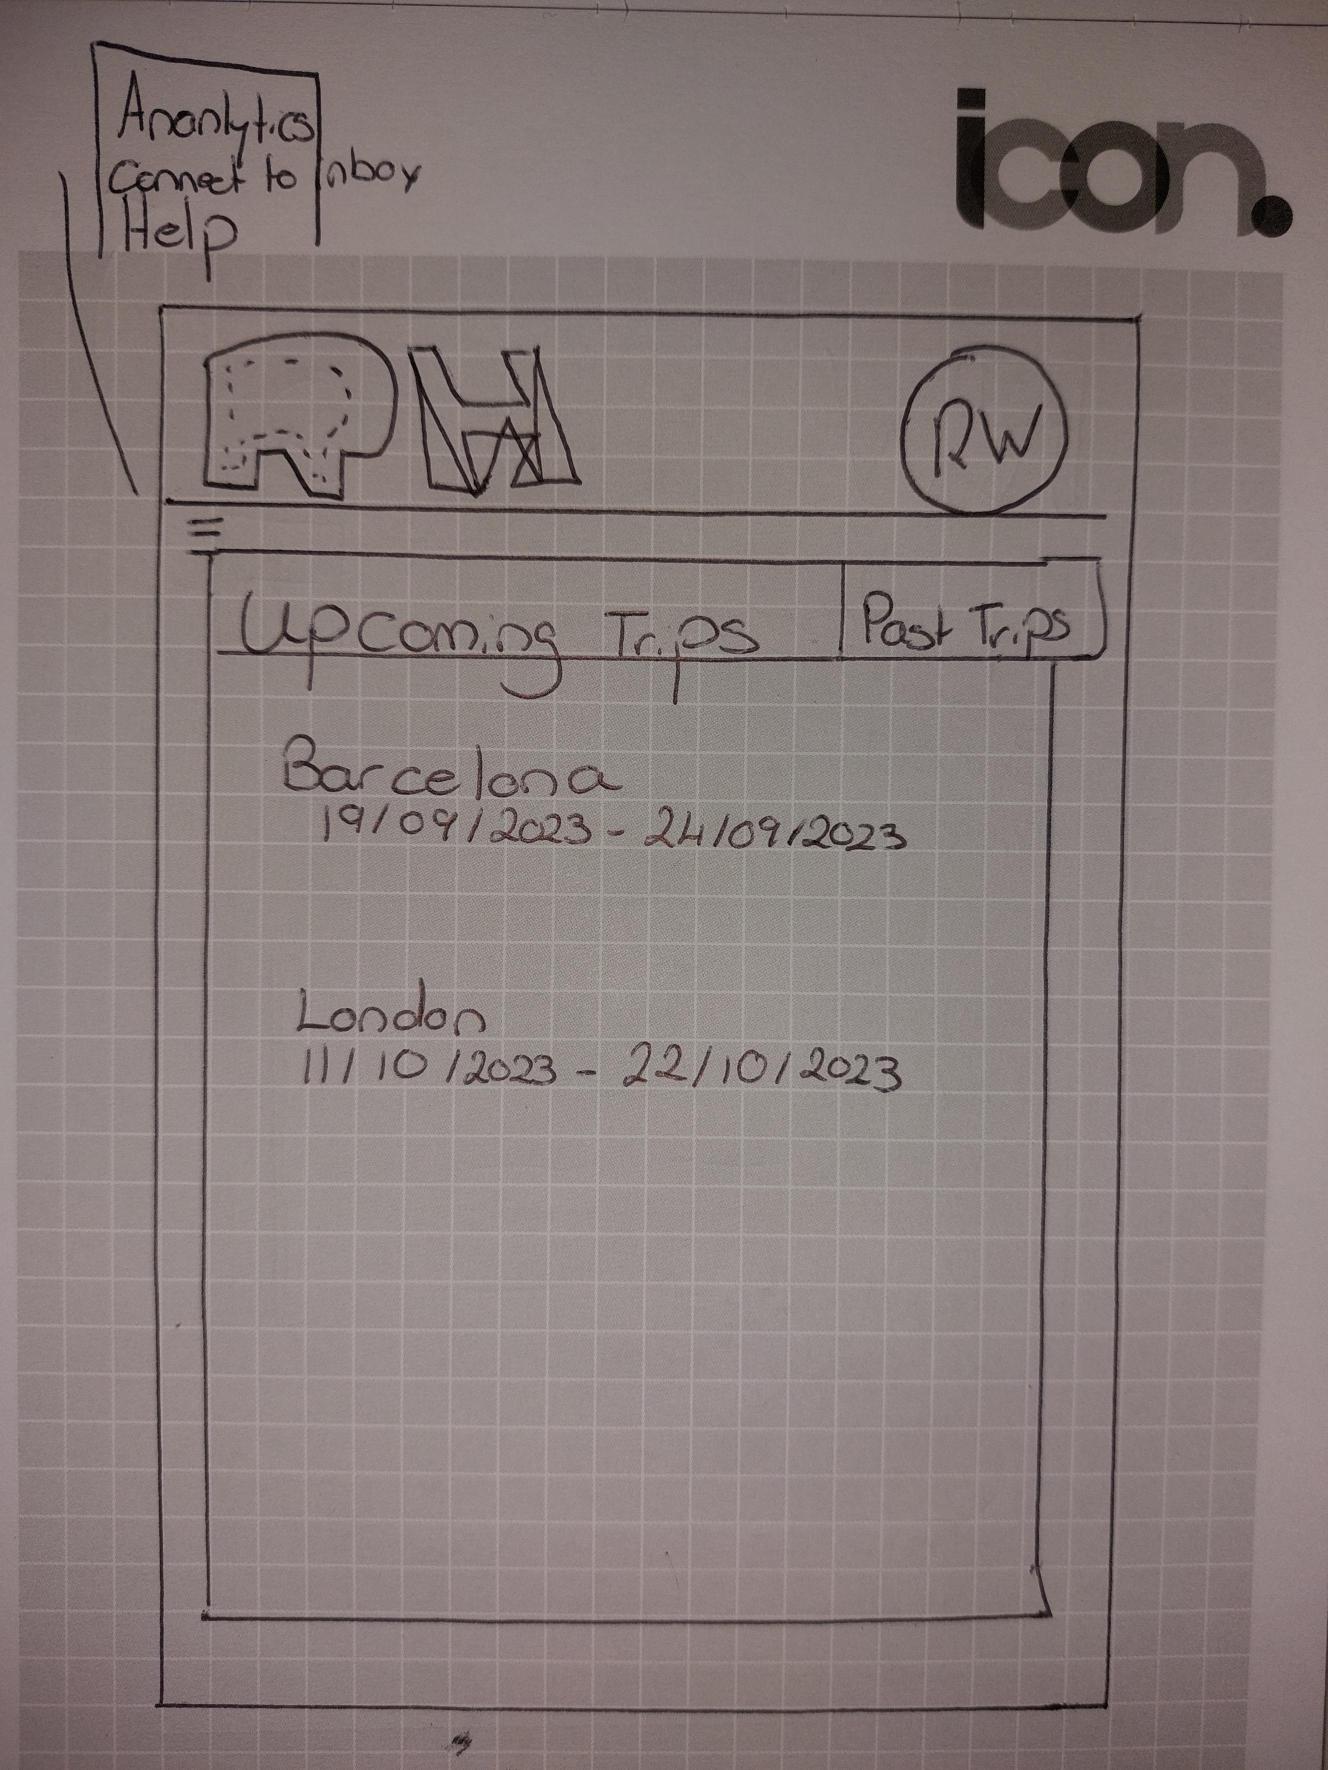 Ananlytics
Connect to Inbox
Help
icon.
RW
Upcoming Trips
Past Trips
Barcelona
19/09/2023 - 24/09/2023
London
11/10/2023 - 22/10/2023